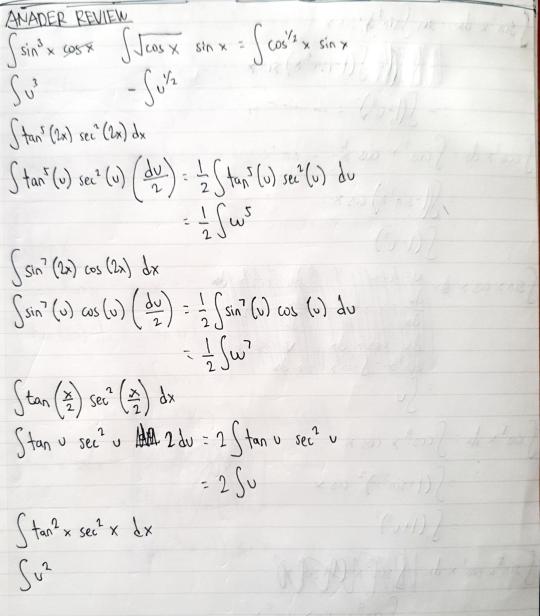 ANADER REVIEW
∫sin³x cos x ∫√cos x sin x = ∫cos^1/2 x sin x
∫u³ -∫u^1/2
∫tan⁵(2x) sec²(2x) dx
∫tan⁵(u) sec²(u) (du/2) = 1/2 ∫tan⁵(u) sec²(u) du
= 1/2 ∫w⁵
∫sin⁷(2x) cos(2x) dx
∫sin⁷(u) cos(u) (du/2) = 1/2 ∫sin⁷(u) cos (u) du
= 1/2 ∫w⁷
∫tan(x/2) sec²(x/2) dx
∫tan u sec² u 2 du = 2∫tan u sec² u
= 2∫u
∫tan²x sec²x dx
∫u²